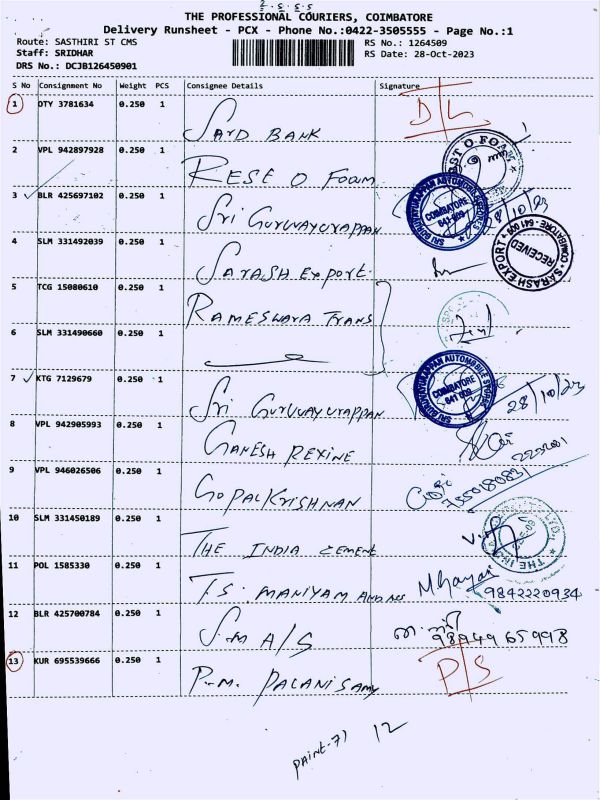 2.5.5.5
THE PROFESSIONAL COURIERS, COIMBATORE
Delivery Runsheet - PCX - Phone No.:0422-3505555 - Page No.:1
Route: SASTHIRI ST CMS RS No.: 1264509
Staff: SRIDHAR RS Date: 28-Oct-2023
DRS No.: DCJB126450901
S No Consignment No Weight PCS Consignee Details Signature
1 OTY 3781634 0.250 1 SARD BANK D/L
2 VPL 942897928 0.250 1 RESE O FOAM
3 BLR 425697102 0.250 1 SRI GURUVAYURAPPAN 28/10/23
SRI GURUVAYURAPPAN AUTOMOBILE SPARES
COIMBATORE
641 009
4 SLM 331492039 0.250 1 SARASH EXPORT
SARASH EXPORT
RECEIVED
COIMBATORE - 641 009
5 TCG 15080610 0.250 1 RAMESWARA TRANS
6 SLM 331490660 0.250 1
7 KTG 7129679 0.250 1 SRI GURUVAYURAPPAN 28/10/23
SRI GURUVAYURAPPAN AUTOMOBILE SPARES
COIMBATORE
641 009
8 VPL 942905993 0.250 1 GANESH REXINE
9 VPL 946026506 0.250 1 GOPALKRISHNAN
10 SLM 331450189 0.250 1 THE INDIA CEMENT
11 POL 1585330 0.250 1 T.S. MANIYAM AND 9842220934
12 BLR 425700784 0.250 1 S.M A/S
13 KUR 695539666 0.250 1 P.M. PALANISAMY P/S
PAINT-71 12